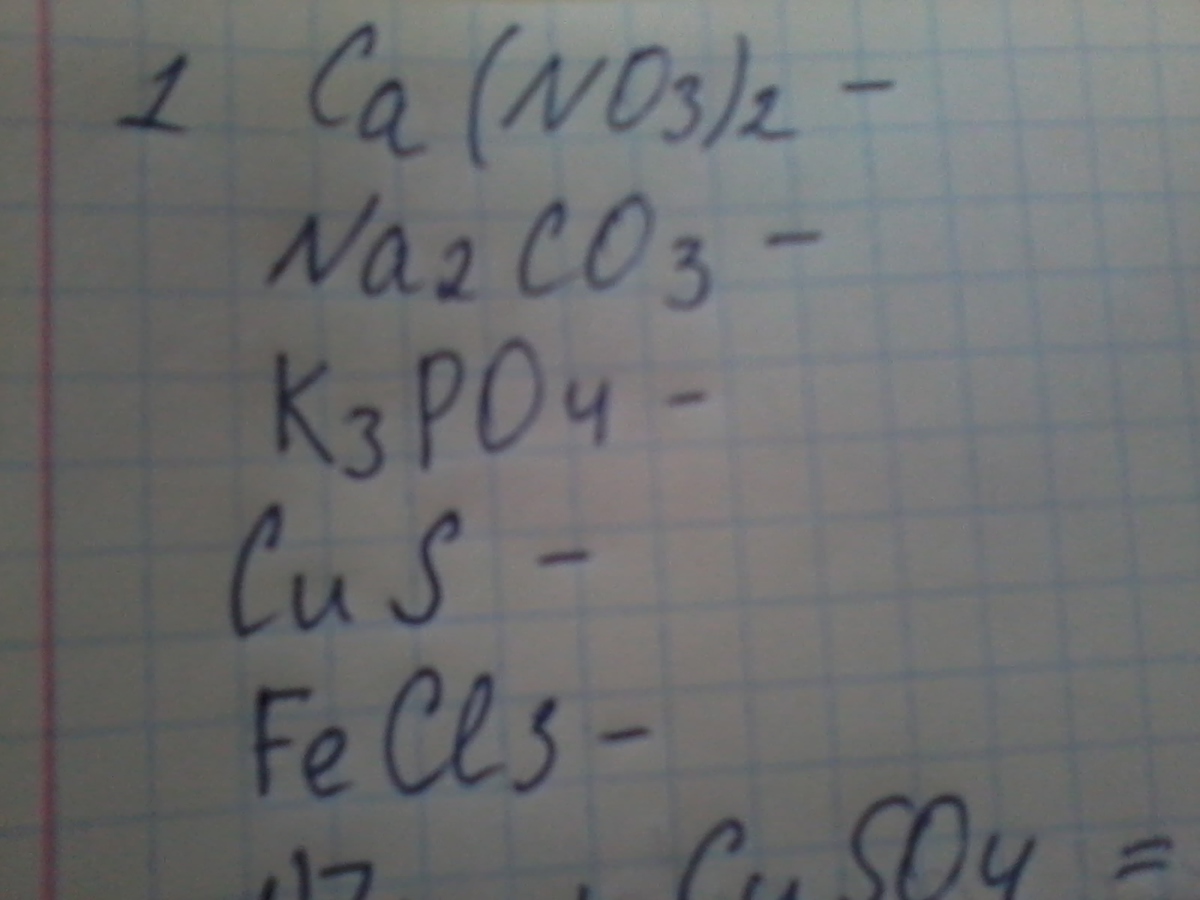 1 Ca(NO3)2 -
Na2CO3 -
K3PO4 -
CuS -
FeCl3 -
CuSO4 =